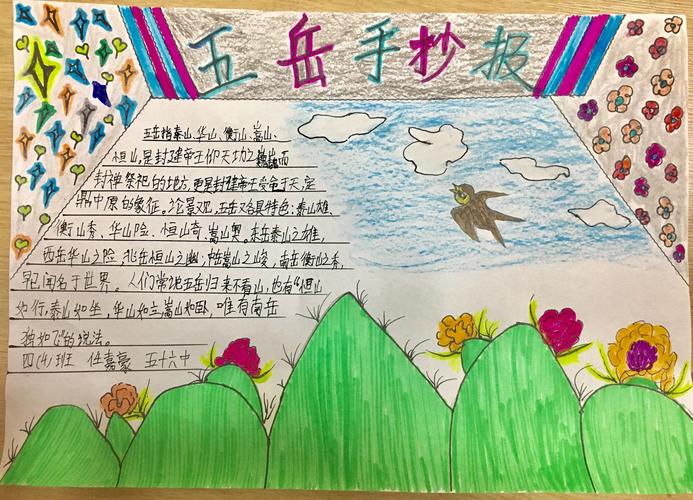 五岳手抄报
五岳指泰山、华山、衡山、嵩山、
恒山,是封建帝王仰天功之巍巍而
封禅祭祀的地方,更是封建帝王受命于天,定
鼎中原的象征。论景观,五岳又各具特色:泰山雄、
衡山秀、华山险、恒山奇、嵩山奥。东岳泰山之雄,
西岳华山之险,北岳恒山之幽,中岳嵩山之峻,南岳衡山之秀,
早已闻名于世界。人们常说五岳归来不看山,也有“恒山
如行,泰山如坐,华山如立,嵩山如卧,唯有南岳
独如飞”的说法。
四(4)班 任嘉豪 五十六中